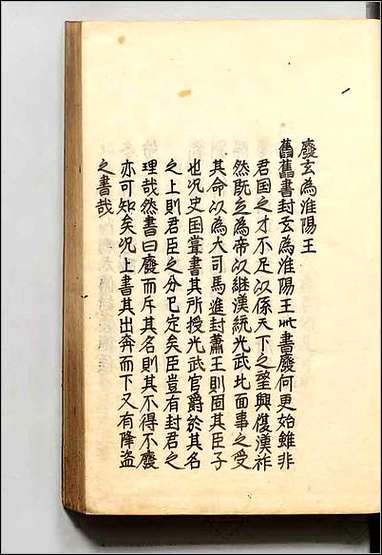 廢玄為淮陽王
舊舊書封玄為淮陽王此書廢何更始雖非
君国之才不足以係天下之望興復漢祚
然既立為帝以継漢統光武北面事之受
其命以為大司馬進封蕭王則固其臣子
也况史国甞書其所授光武官爵於其名
之上則君臣之分已定矣臣豈有封君之
理哉然書曰廢而斥其名則其不得不廢
亦可知矣况上書其出奔而下又有降盗
之書哉